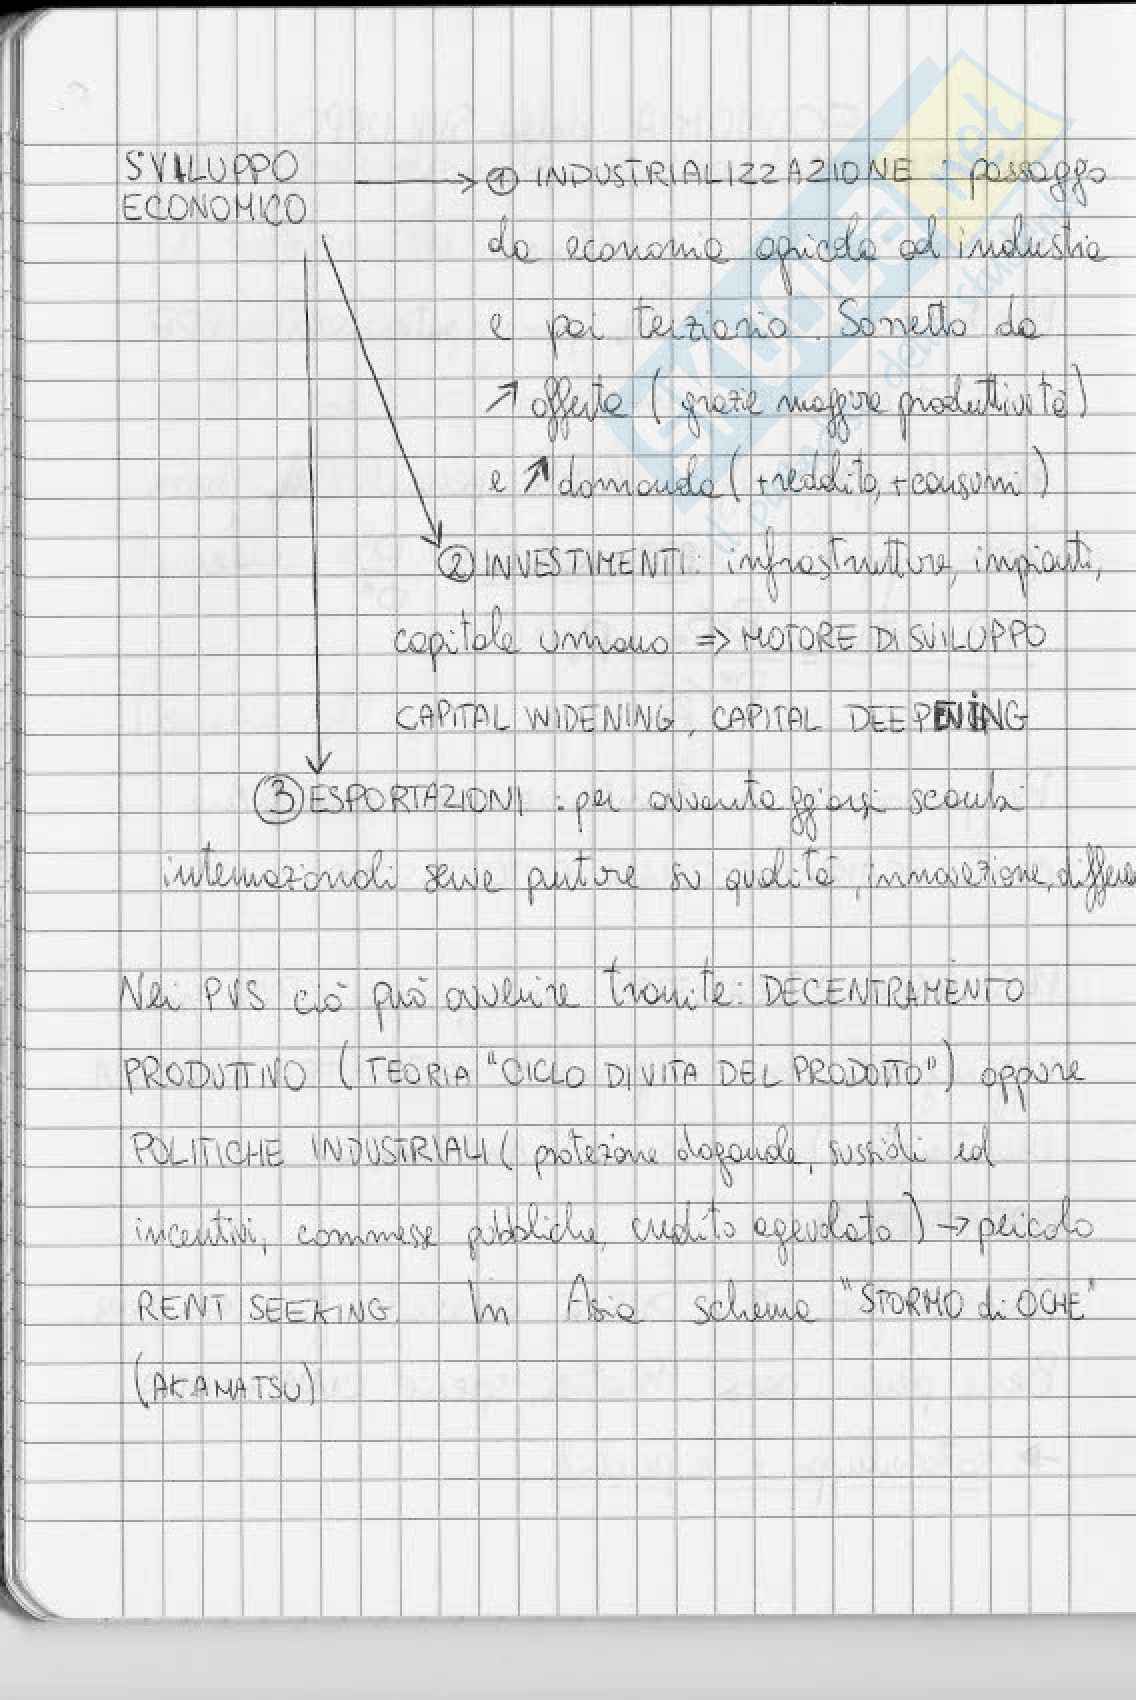 SVILUPPO
ECONOMICO
→ ① INDUSTRIALIZZAZIONE : passaggo
da economia agricola ad industria
e poi terziario. Sorretto da
↗ offerta ( grazie maggiore produttività )
e ↗ domanda ( +reddito, +consumi )
② INVESTIMENTI : infrastrutture, impianti,
capitale umano => MOTORE DI SVILUPPO
CAPITAL WIDENING, CAPITAL DEEPENING
③ ESPORTAZIONI : per avvantaggiarsi scambi
internazionali serve puntare su qualità, innovazione, differen
Nei PVS ciò può avvenire tramite: DECENTRAMENTO
PRODUTTIVO ( TEORIA "CICLO DI VITA DEL PRODOTTO" ) oppure
POLITICHE INDUSTRIALI ( protezione doganale, sussidi ed
incentivi, commesse pubbliche, credito agevolato ) → pericolo
RENT SEEKING. In Asia schema "STORMO di OCHE"
(AKAMATSU)
SKUOLA.net